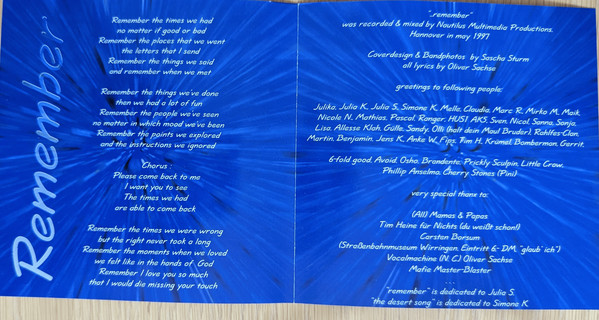 Remember
Remember the times we had
no matter if good or bad
Remember the places that we went
the letters that I send
Remember the things we said
and remember when we met
Remember the things we've done
then we had a lot of fun
Remember the people we've seen
no matter in which mood we've been
Remember the points we explored
and the instructions we ignored
Chorus :
Please come back to me
I want you to see
The times we had
are able to come back
Remember the times we were wrong
but the right never took a long
Remember the moments when we loved
we felt like in the hands of God
Remember I love you so much
that I would die missing your touch
"..remember"
was recorded & mixed by Nautilus Multimedia Productions.
Hannover in may 1997
Coverdesign & Bandphotos by Sascha Sturm
all lyrics by Oliver Sachse
greetings to following people:
Julika, Julia K, Julia S, Simone K, Melle, Claudia, Marc R, Mirko M, Maik,
Nicole N, Mathias, Pascal, Ranger, HUS! AKS, Sven, Nicol, Sanna, Sonja,
Lisa, Allesse Klah, Gülle, Sandy, Olli (halt dein Maul Bruder), Rahlfes-Clan,
Martin, Benjamin, Jens K, Anke W, Fips, Tim H, Krümel, Bomberman, Gerrit,
6-fold good, Avoid, Osho, Brandente, Prickly Sculpin, Little Crow,
Phillip Anselmo, Cherry Stones (Pini)
very special thanx to:
(All) Mamas & Papas
Tim Heine für Nichts (du weißt schon!)
Carsten Borsum
(Straßenbahnmuseum Wirringen, Eintritt 6,- DM, "glaub' ich")
Vocalmachine (N. C.) Oliver Sachse
Mafia Master-Blaster
. . .
"remember" is dedicated to Julia S.
"the desert song" is dedicated to Simone K